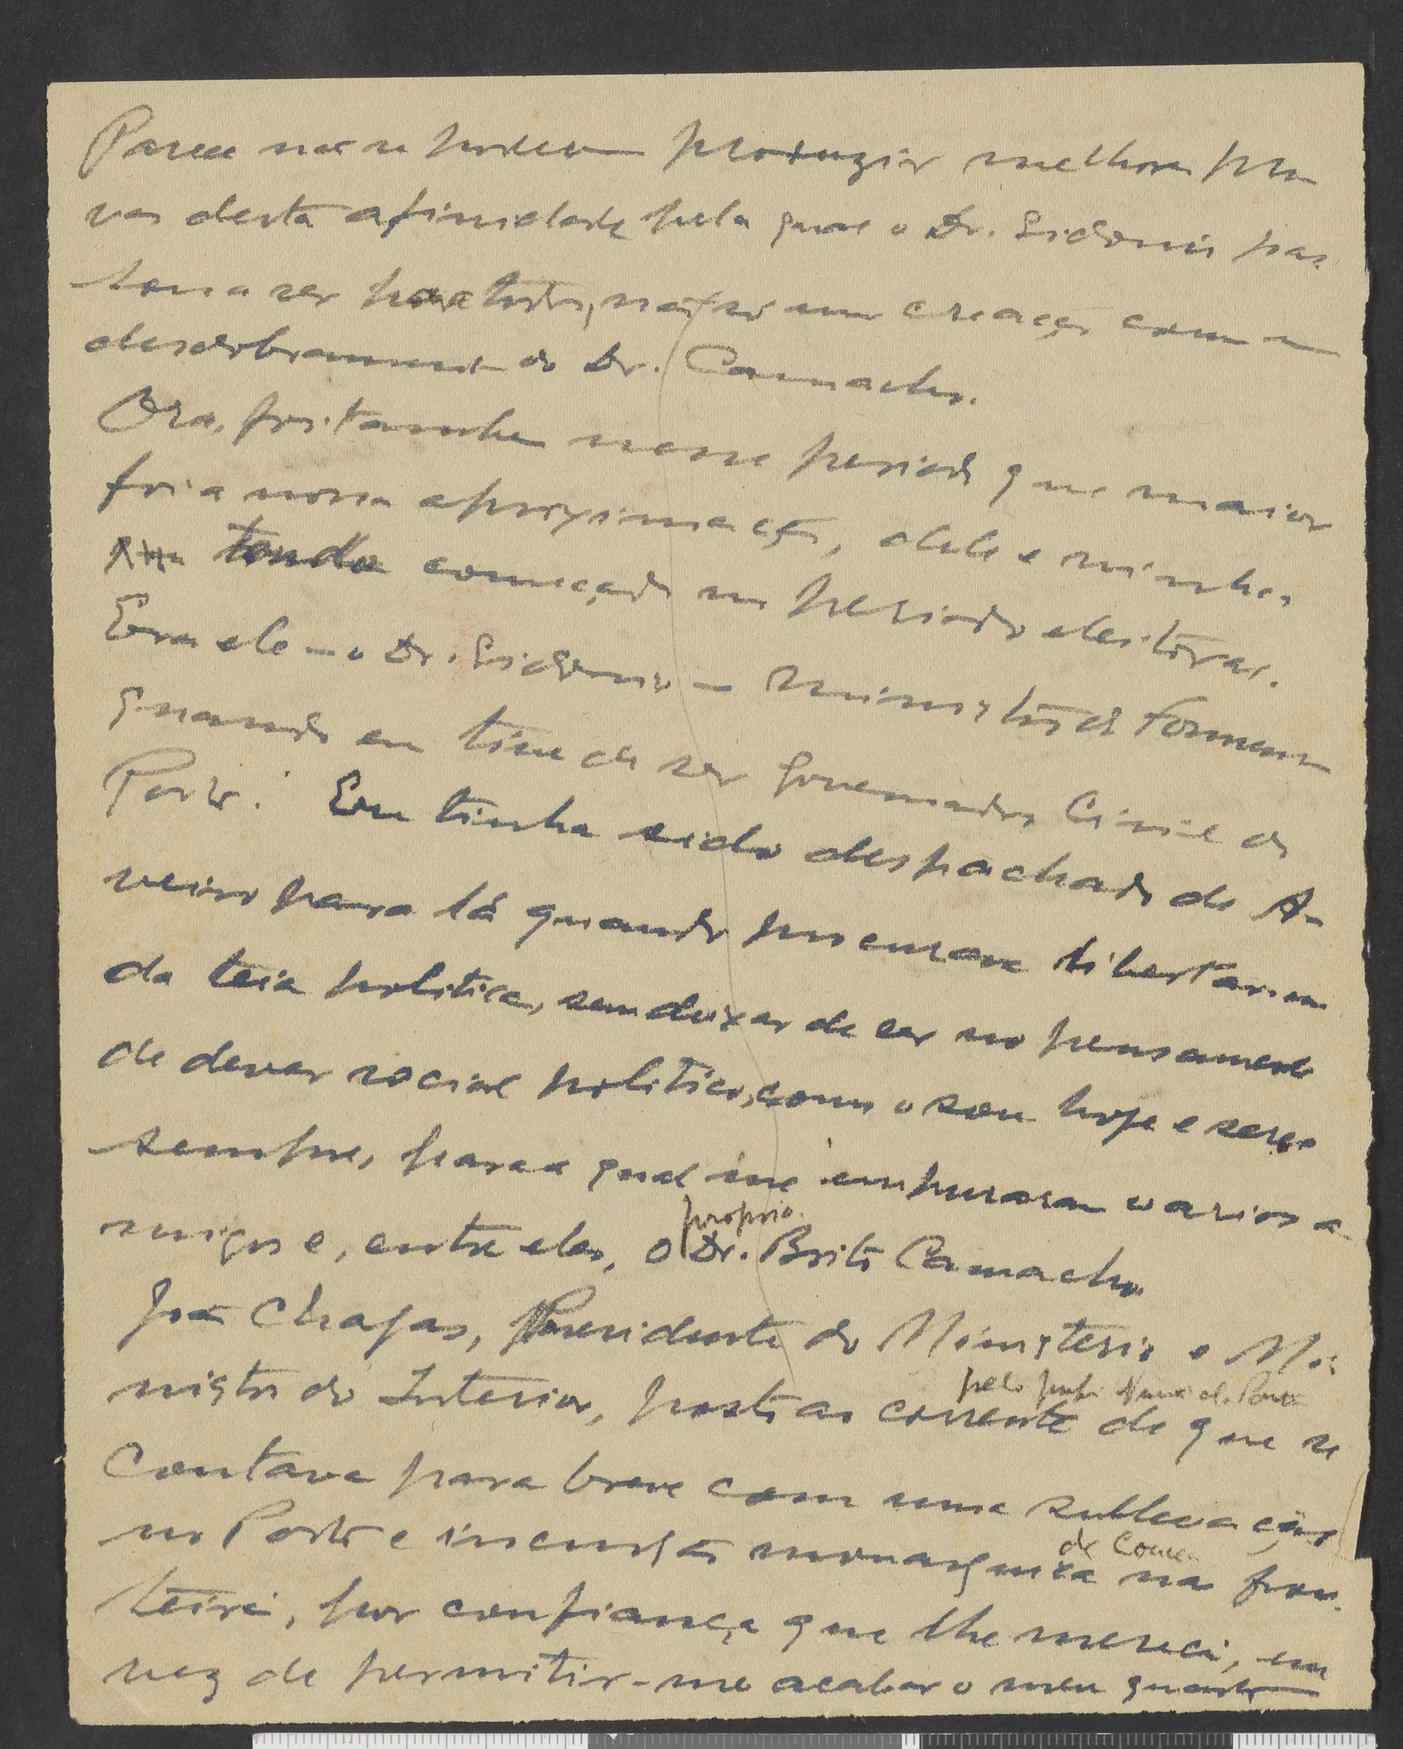 Parece não se podem produzir melhores pro
vas desta afinidade pela qual o Dr. Sidonio pas
sou a ser para todos, não só uma creação como um
desdobramento do Dr. Camacho.
Ora, foi tambem nesse periodo que maior
foi a nossa aproximação, dele e minha,
tendo começado no periodo eleitoral.
Era ele — o Dr. Sidonio — Ministro do Fomento
quando eu tive de ser Governador Civil do
Porto. Eu tinha sido despachado de A-
veiro para lá quando procurava libertar-me
da teia politica, sem deixar de ser no pensamento
de dever social politico, como o sou hoje e serei
sempre, para a qual me empurraram varios a
migos e, entre eles, o proprio Dr. Brito Camacho
João Chagas, Presidente do Ministerio e Mi-
nistro do Interior, posto ao corrente pelo de que se
contava para breve com uma sublevação
no Porto e incursão monarquica de Couceiro na fron-
teira, por confiança que lhe mereci, em
vez de permitir-me acabar o meu quando